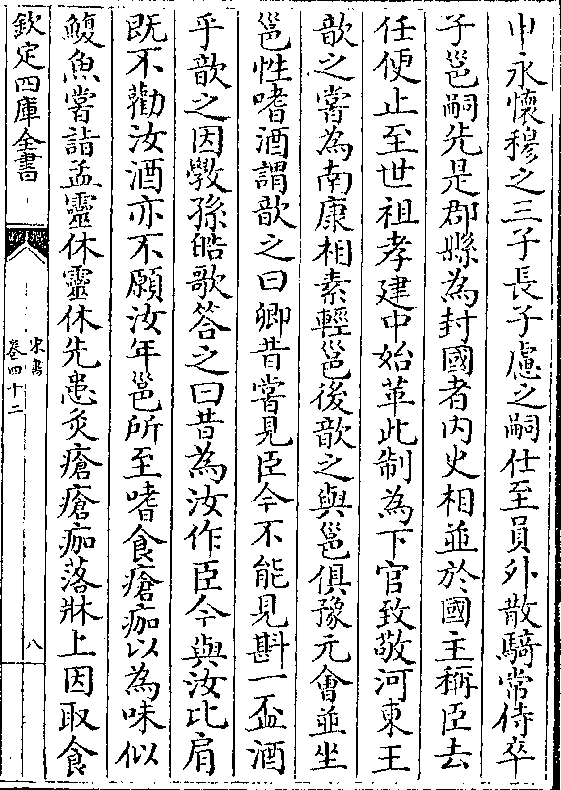 中永懐穆之三子長子慮之嗣仕至員外散騎常侍卒
子邕嗣先是郡縣為封國者内史相並於國主稱臣去
任便止至世祖孝建中始革此制為下官致敬河東王
歆之嘗為南康相素輕邕後歆之與邕俱豫元會並坐
邕性嗜酒謂歆之曰卿昔嘗見臣今不能見斟一盃酒
乎歆之因斆孫皓歌答之曰昔為汝作臣今與汝比肩
既不勸汝酒亦不願汝年邕所至嗜食瘡痂以為味似
鰒魚嘗詣孟靈休靈休先患灸瘡瘡痂落牀上因取食
欽定四庫全書
宋書
卷四十二
八